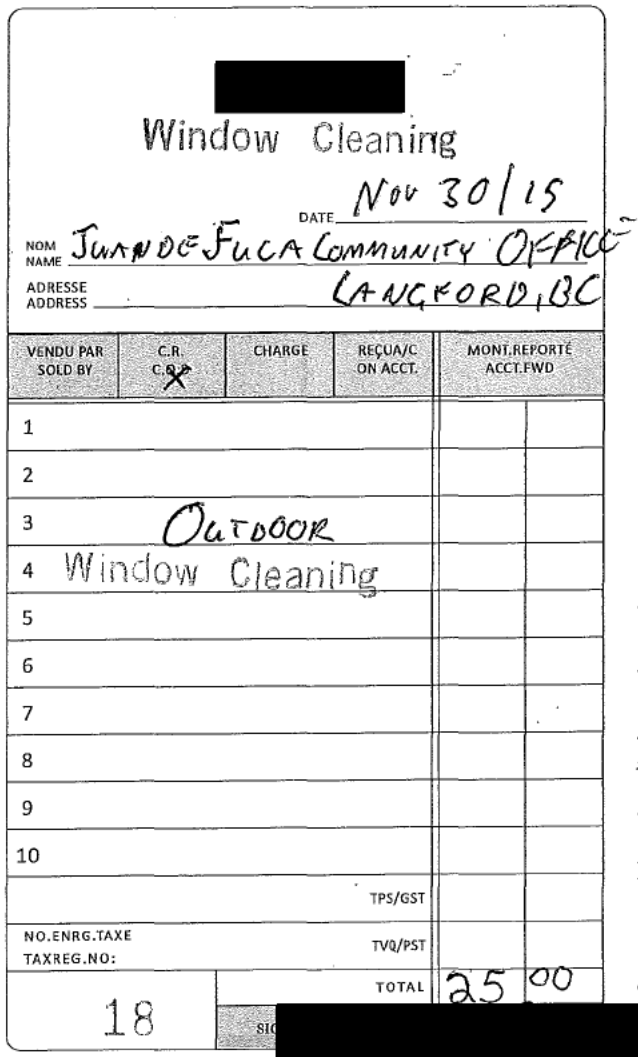 Window Cleaning
DATE Nov 30/15
NOM
NAME JUAN DE FUCA COMMUNITY OFFICE
ADRESSE
ADDRESS LANGFORD, BC
VENDU PAR
SOLD BY
C.R.
C.O.D. X
CHARGE
REÇUA/C
ON ACCT.
MONT.REPORTÉ
ACCT.FWD
1
2
3 OUTDOOR
4 Window Cleaning
5
6
7
8
9
10
TPS/GST
NO.ENRG.TAXE
TAXREG.NO:
TVQ/PST
TOTAL 25 00
18